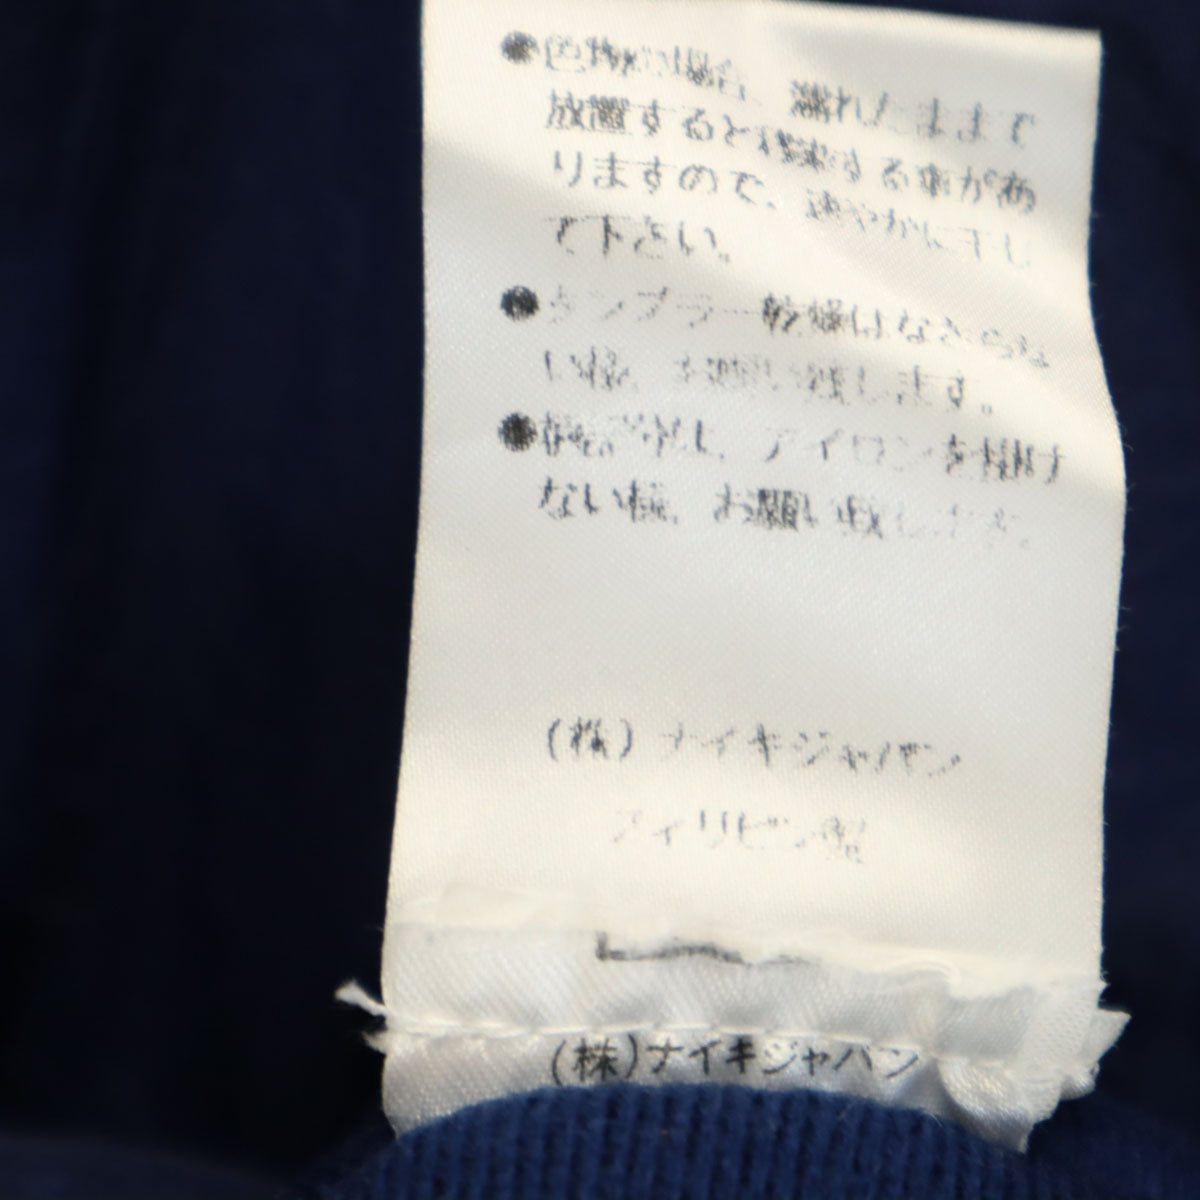 ●色物の場合、濡れたままで
放置すると移染する事があ
りますので、速やかに干し
て下さい。
●タンブラー乾燥はなさらな
い様、お願い致します。
●柄部分には、アイロンを掛け
ない様、お願い致します。
(株) ナイキジャパン
フィリピン製
(株)ナイキジャパン